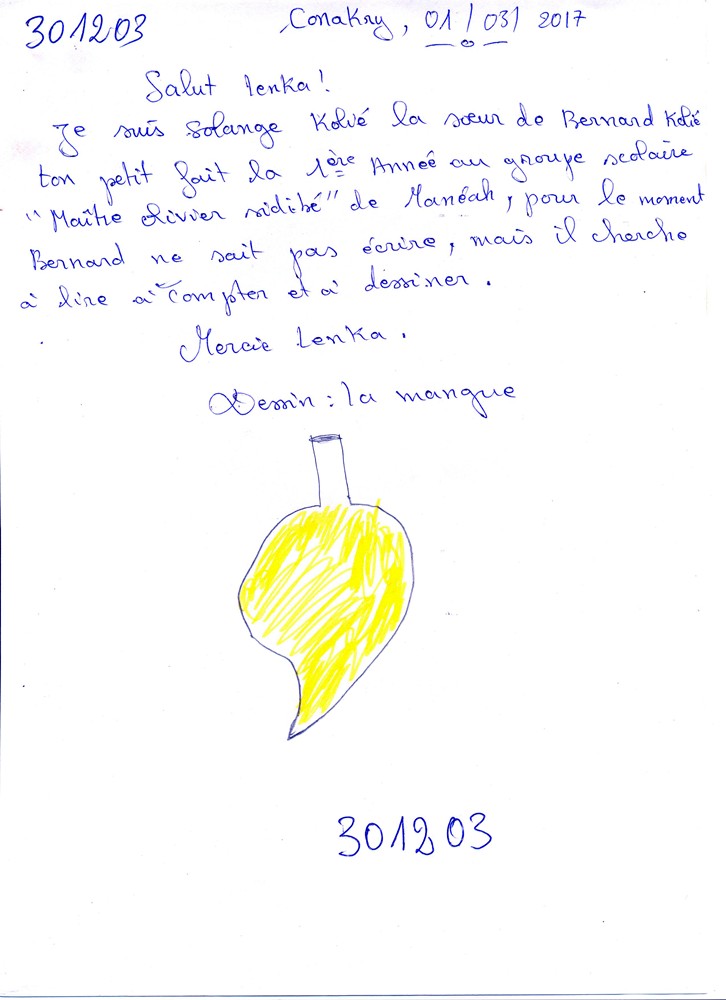 301203
Conakry, 01/03/2017
Salut Lenka!
Je suis Solange Kolvé la sœur de Bernard Kolié
ton petit fait la 1ère Année au groupe scolaire
"Maître Olivier sidibé" de Manéah, pour le moment
Bernard ne sait pas écrire, mais il cherche
à lire à Compter et à dessiner.
Mercie Lenka.
Dessin: la mangue
301203